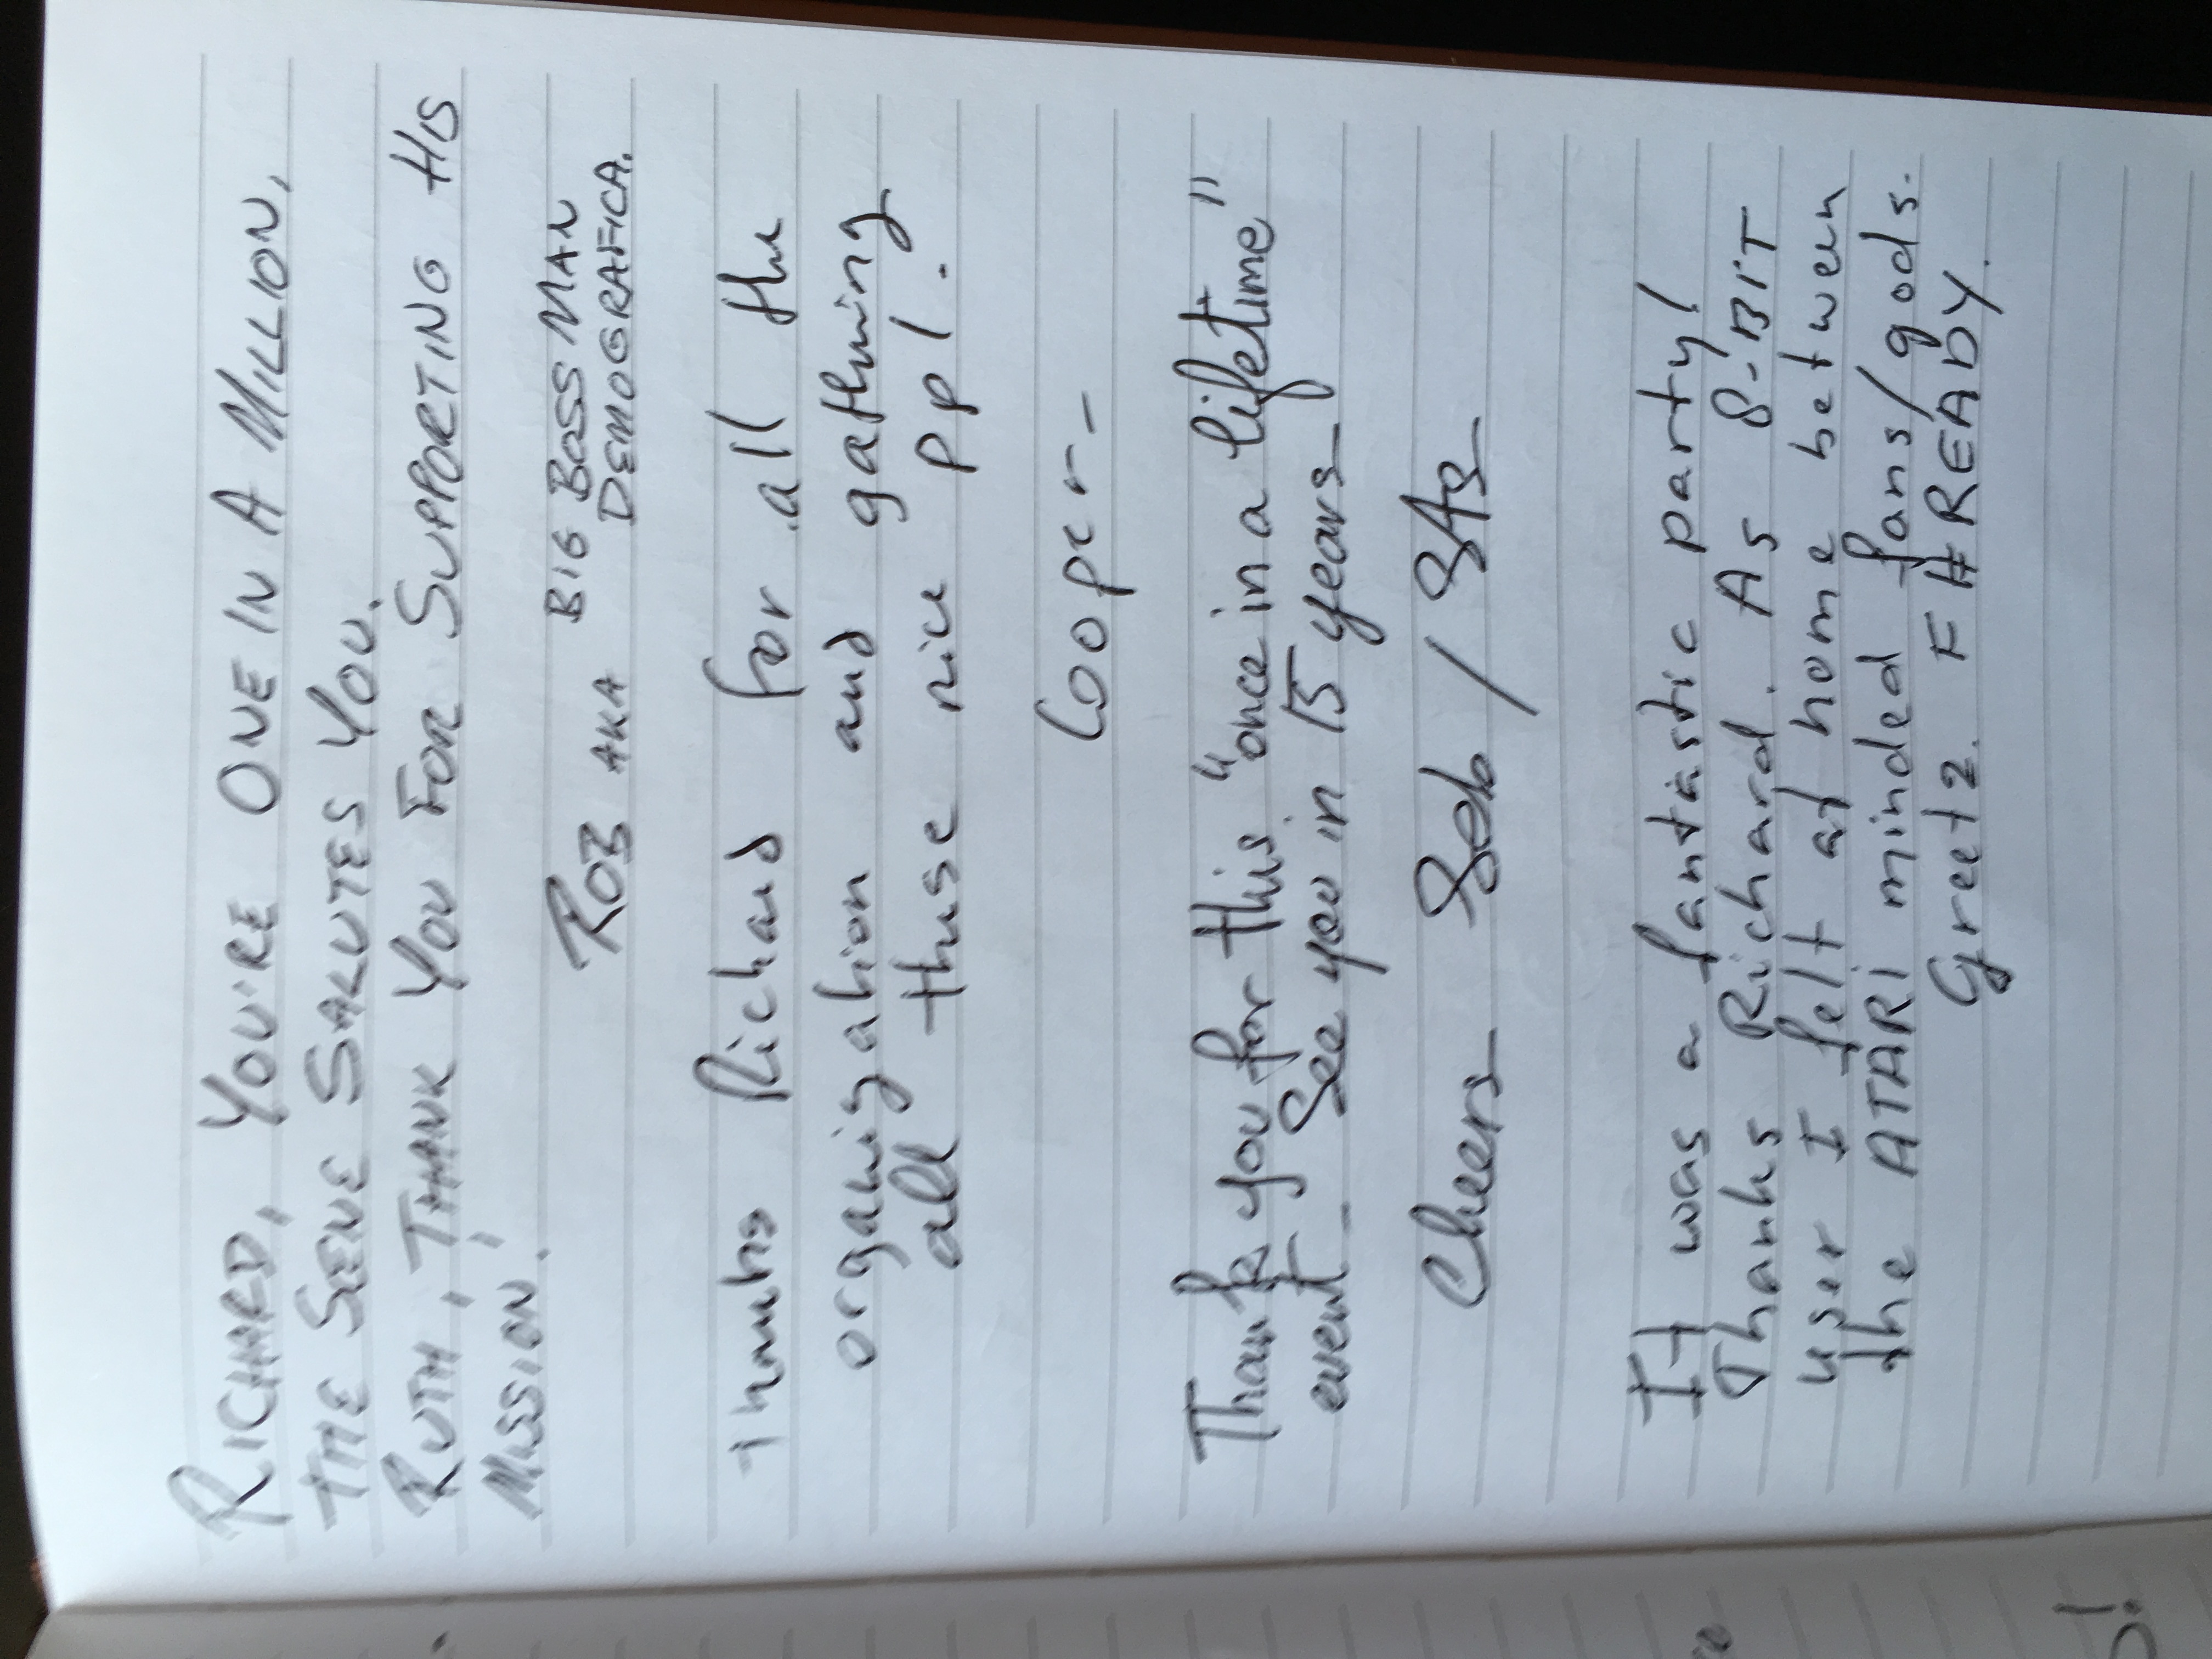 RICHARD, YOU'RE ONE IN A MILLION,
THE SCENE SALUTES YOU.
RUTH, THANK YOU FOR SUPPORTING HIS
MISSION.
ROB AKA BIG BOSS MAN
DEMOGRAFICA.
Thanks Richard for all the
organisation and gathering
all these nice ppl.
Cooper
Thank you for this "once in a lifetime"
event. See you in 15 years
Cheers Seb / SAs
It was a fantastic party!
Thanks Richard. As 8-BIT
user I felt at home between
the ATARI minded fans/gods.
Greetz. F#READY.
s!